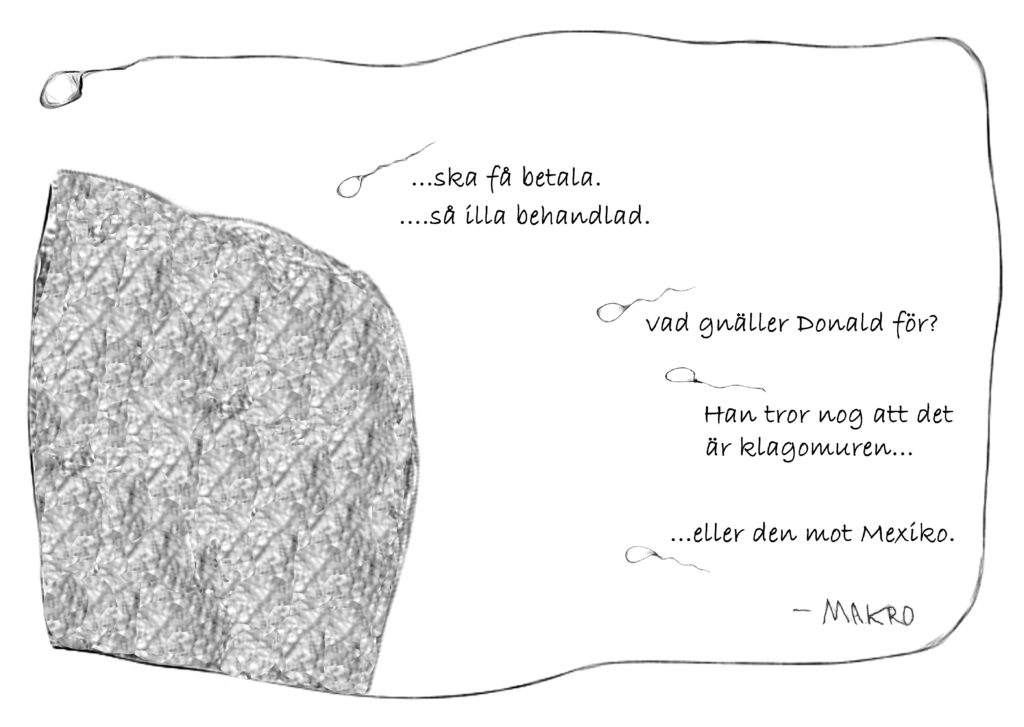 ...ska få betala.
....så illa behandlad.
vad gnäller Donald för?
Han tror nog att det
är klagomuren...
...eller den mot Mexiko.
- MAKRO